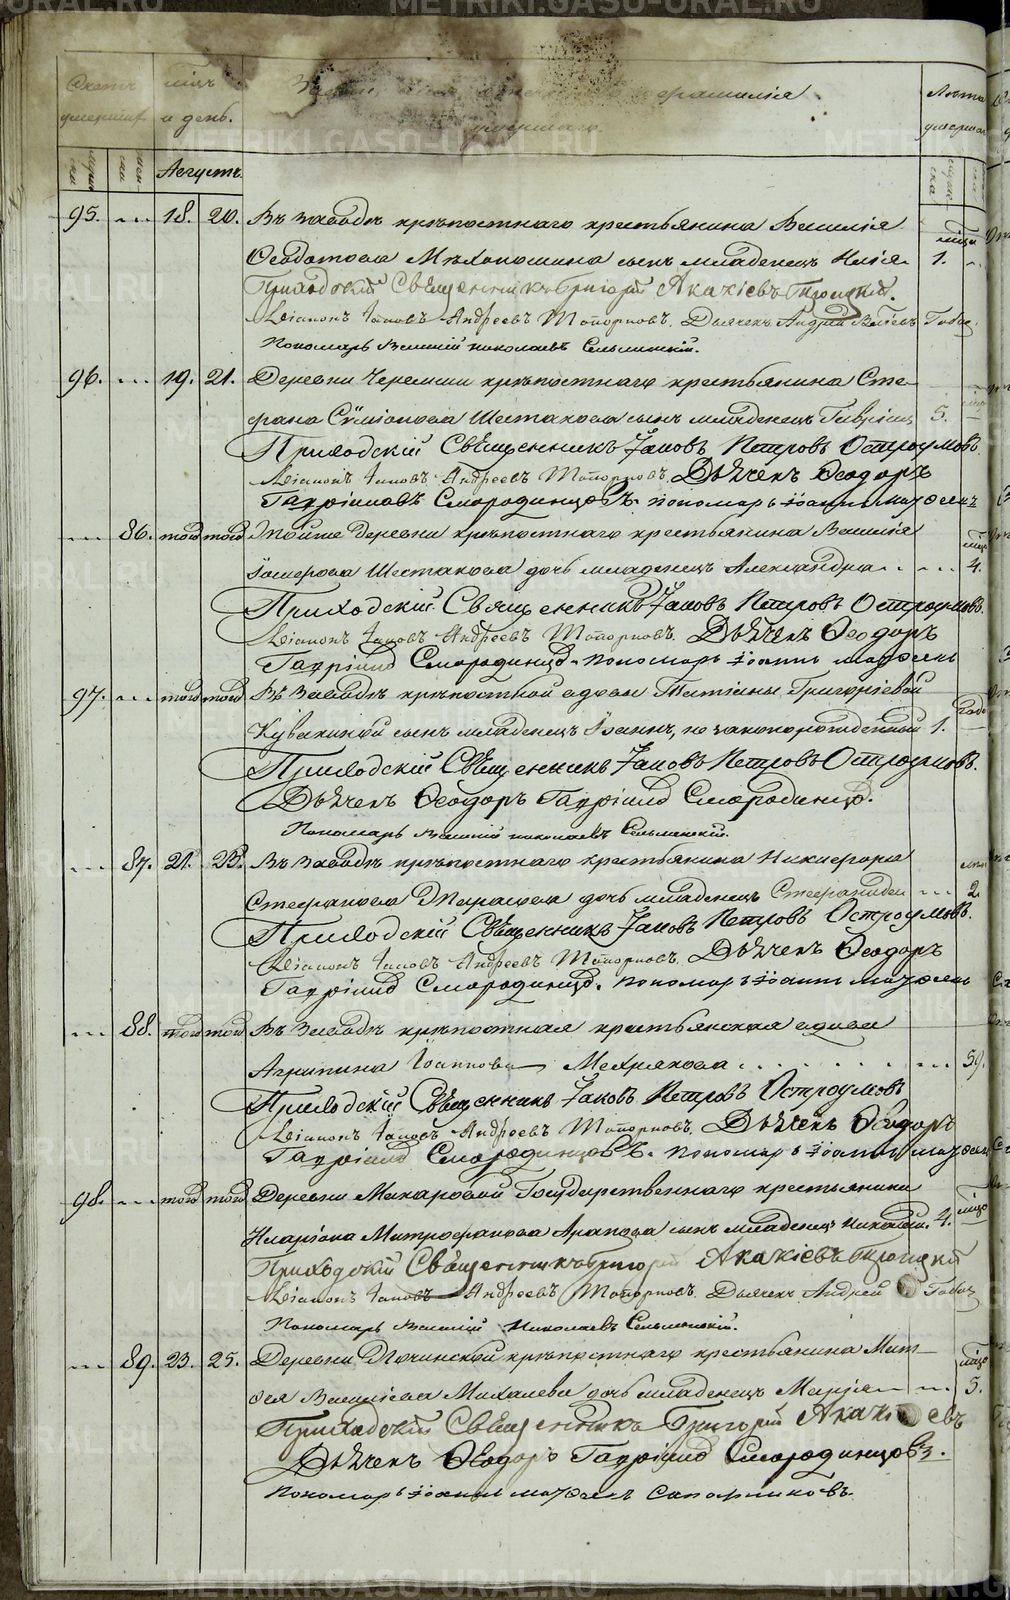 METRIKI.GASU-URAL.RU
Счетъ умершихъ
мѣсяцъ и день.
Званіе, имя, фамилія умершаго.
Лѣта умершаго
Августъ.
95. — 18. 20. Въ Заводѣ крѣпостнаго крестьянина Василія
Ѳеодотова Мѣхоношина сынъ младенецъ Илія — 1.
Приходскій Священникъ Григорій Акакіевъ Троицкій.
Діаконъ Іаковъ Андреевъ Топорковъ. Дьячекъ Андрей
Пономарь Василій Николаевъ Сельменскій.
96. — 19. 21. Деревни Черемши крѣпостнаго крестьянина Сте-
фана Сѵміонова Шестакова сынъ младенецъ Гавріилъ 5.
Приходскій Священникъ Іаковъ Петровъ Остроумовъ
Діаконъ Іаковъ Андреевъ Топорковъ. Дьячекъ Ѳеодоръ
Гавріиловъ Смородинцовъ. пономарь Іоаннъ
— 86. тогожъ тогожъ Тойже деревни крѣпостнаго крестьянина Василія
Шестакова дочь младенецъ Александра — 4.
Приходскій Священникъ Іаковъ Петровъ Остроумовъ.
Діаконъ Іаковъ Андреевъ Топорковъ. Дьячекъ Ѳеодоръ
Гавріилов Смородинцов. пономарь Іоаннъ
97. — тогожъ тогожъ Въ Заводѣ крѣпостной вдовы Татіаны Григоріевой
Кувакиной сынъ младенецъ Іоаннъ, незаконорожденный 1.
Приходскій Священникъ Іаковъ Петровъ Остроумовъ.
Дьячекъ Ѳеодоръ Гавріилов Смородинцов.
Пономарь Василій Николаевъ Сельменскій.
— 87. 21. 23. Въ Заводѣ крѣпостнаго крестьянина Никифора
Стефанова дочь младенецъ Стефанида — 2.
Приходскій Священникъ Іаковъ Петровъ Остроумовъ.
Діаконъ Іаковъ Андреевъ Топорковъ. Дьячекъ Ѳеодоръ
Гавріилов Смородинцов. пономарь Іоаннъ
— 88. тогожъ тогожъ Въ Заводѣ крѣпостная крестьянская вдова
Агрипина Іоаннова Мехрякова — 59.
Приходскій Священникъ Іаковъ Петровъ Остроумовъ
Діаконъ Іаковъ Андреевъ Топорковъ. Дьячекъ Ѳеодоръ
Гавріилов Смородинцовъ. пономарь Іоаннъ
98. — тогожъ тогожъ Деревни Макаровой Государственнаго крестьянина
Иларіона Митрофанова Арапова сынъ младенецъ Николай. 4.
Приходскій Священникъ Григорій Акакіевъ Троицкій
Діаконъ Іаковъ Андреевъ Топорковъ. Дьячекъ Андрей
Пономарь Василій Николаевъ Сельменскій.
— 89. 23. 25. Деревни крѣпостнаго крестьянина Мат-
ѳея Василіева Михалева дочь младенецъ Марія — 5.
Приходскій Священникъ Григорій Акакіевъ
Дьячекъ Ѳеодоръ Гавріилов Смородинцовъ.
пономарь Іоаннъ Сапожниковъ.
METRIKI.GASU-URAL.RU